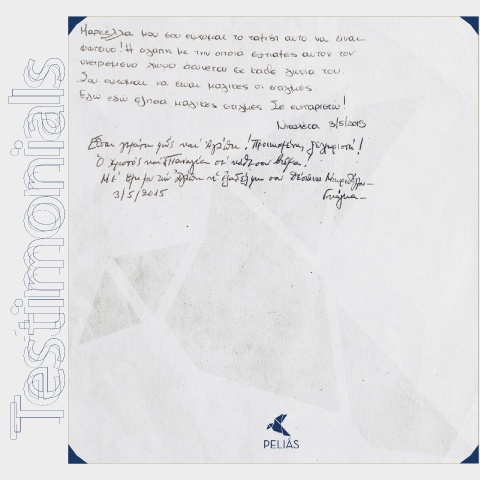 Testimonials
Μαρκέλλα μου σου εύχομαι το ταξίδι αυτό να είναι
φωτεινό! Η αγάπη με την οποία έφτιαξες αυτόν τον
ονειρεμένο χώρο φαίνεται σε κάθε γωνιά του.
Σου εύχομαι να είναι μαγικές οι στιγμές.
Εγώ εδώ έζησα μαγικές στιγμές. Σε ευχαριστώ!
Νικολέτα 3/5/2015
Είσαι γεμάτη φώς καί Αγάπη! Προικισμένη, ξεχωριστή!
Ο Χριστός καί η Παναγία σέ κάθε σου βήμα!
Μέ όλη μου τήν Αγάπη
3/5/2015
PELIÁS